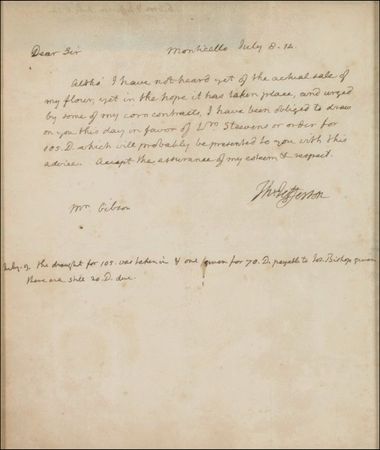 Dear Sir Monticello July 8. 14.
Altho' I have not heard yet of the actual sale of
my flour, yet in the hope it has taken place, and urged
by some of my corn contracts, I have been obliged to draw
on you this day in favor of Wm Steevens or order for
105. D. which will probably be presented to you with this
advice. Accept the assurance of my esteem & respect.
Th: Jefferson
Mr. Gibson
July. 9. the draught for 105. was taken in & one given for 70. D. payable to Jos. Bishop
there are still 20. D. due.